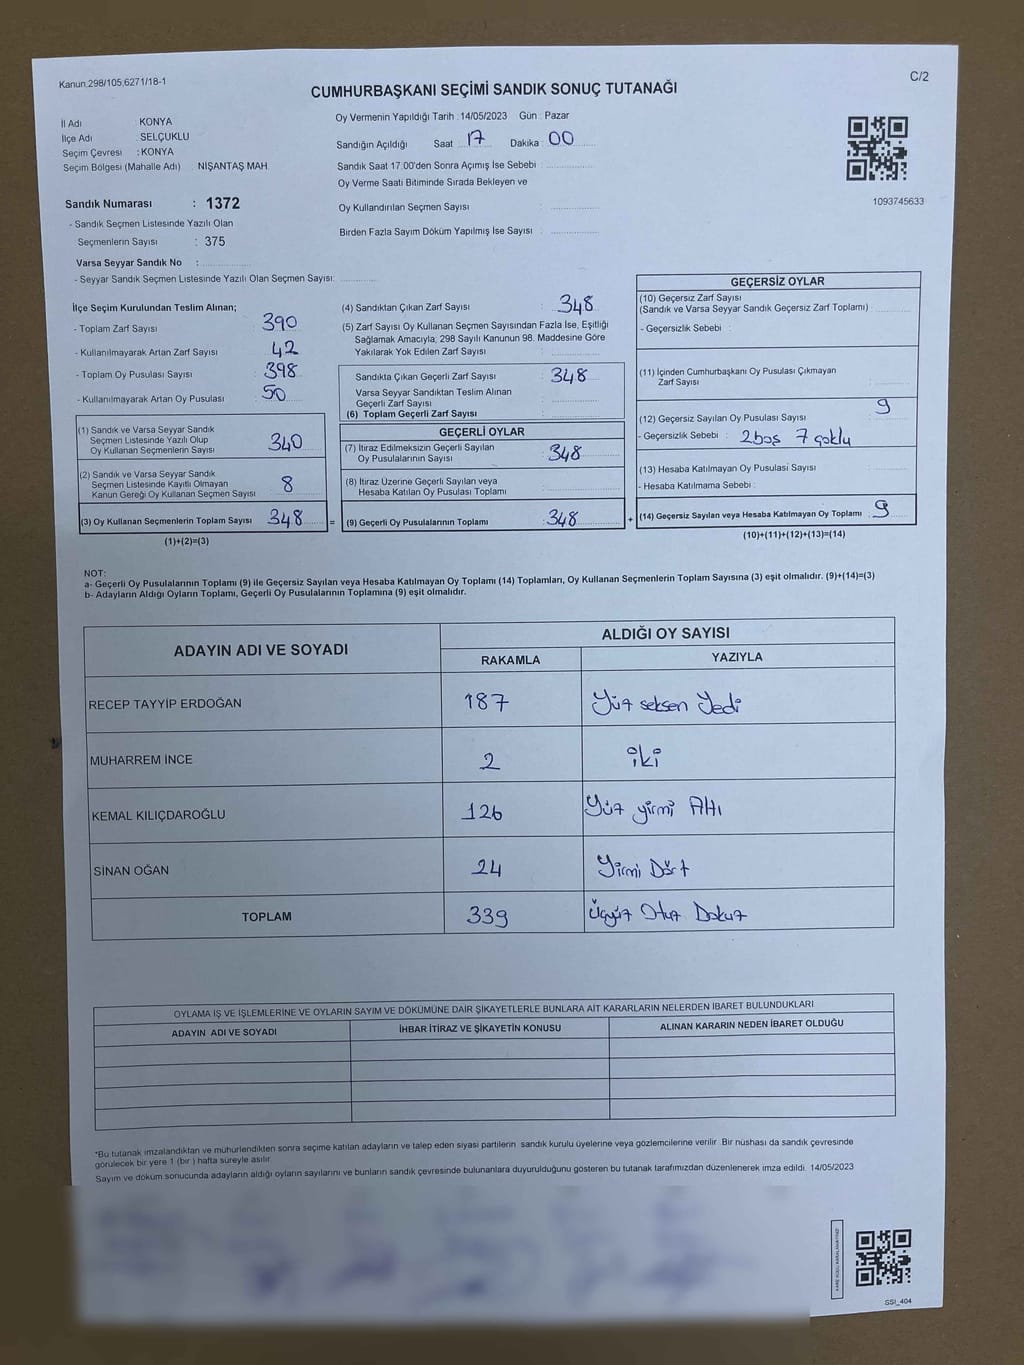 Kanun;298/105;6271/18-1
C/2
CUMHURBAŞKANI SEÇİMİ SANDIK SONUÇ TUTANAĞI
İl Adı : KONYA
İlçe Adı : SELÇUKLU
Seçim Çevresi : KONYA
Seçim Bölgesi (Mahalle Adı) : NİŞANTAŞ MAH.
Oy Vermenin Yapıldığı Tarih : 14/05/2023 Gün : Pazar
Sandığın Açıldığı Saat : 17 Dakika : 00
Sandık Saat 17:00'den Sonra Açımış İse Sebebi :
Oy Verme Saati Bitiminde Sırada Bekleyen ve
Oy Kullandırılan Seçmen Sayısı :
Birden Fazla Sayım Döküm Yapılmış İse Sayısı :
1093745633
Sandık Numarası : 1372
- Sandık Seçmen Listesinde Yazılı Olan
Seçmenlerin Sayısı : 375
Varsa Seyyar Sandık No :
- Seyyar Sandık Seçmen Listesinde Yazılı Olan Seçmen Sayısı:
İlçe Seçim Kurulundan Teslim Alınan;
- Toplam Zarf Sayısı : 390
- Kullanılmayarak Artan Zarf Sayısı : 42
- Toplam Oy Pusulası Sayısı : 398
- Kullanılmayarak Artan Oy Pusulası : 50
(1) Sandık ve Varsa Seyyar Sandık
Seçmen Listesinde Yazılı Olup
Oy Kullanan Seçmenlerin Sayısı : 340
(2) Sandık ve Varsa Seyyar Sandık
Seçmen Listesinde Kayıtlı Olmayan
Kanun Gereği Oy Kullanan Seçmen Sayısı : 8
(3) Oy Kullanan Seçmenlerin Toplam Sayısı : 348 =
(1)+(2)=(3)
(4) Sandıktan Çıkan Zarf Sayısı : 348
(5) Zarf Sayısı Oy Kullanan Seçmen Sayısından Fazla İse, Eşitliği
Sağlamak Amacıyla; 298 Sayılı Kanunun 98. Maddesine Göre
Yakılarak Yok Edilen Zarf Sayısı :
Sandıkta Çıkan Geçerli Zarf Sayısı : 348
Varsa Seyyar Sandıktan Teslim Alınan
Geçerli Zarf Sayısı :
(6) Toplam Geçerli Zarf Sayısı :
GEÇERLİ OYLAR
(7) İtiraz Edilmeksizin Geçerli Sayılan
Oy Pusulalarının Sayısı : 348
(8) İtiraz Üzerine Geçerli Sayılan veya
Hesaba Katılan Oy Pusulası Toplamı :
(9) Geçerli Oy Pusulalarının Toplamı : 348 +
GEÇERSİZ OYLAR
(10) Geçersiz Zarf Sayısı
(Sandık ve Varsa Seyyar Sandık Geçersiz Zarf Toplamı) :
- Geçersizlik Sebebi :
(11) İçinden Cumhurbaşkanı Oy Pusulası Çıkmayan
Zarf Sayısı :
(12) Geçersiz Sayılan Oy Pusulası Sayısı : 9
- Geçersizlik Sebebi : 2 boş 7 çoklu
(13) Hesaba Katılmayan Oy Pusulası Sayısı :
- Hesaba Katılmama Sebebi :
(14) Geçersiz Sayılan veya Hesaba Katılmayan Oy Toplamı : 9
(10)+(11)+(12)+(13)=(14)
NOT:
a- Geçerli Oy Pusulalarının Toplamı (9) ile Geçersiz Sayılan veya Hesaba Katılmayan Oy Toplamı (14) Toplamları, Oy Kullanan Seçmenlerin Toplam Sayısına (3) eşit olmalıdır. (9)+(14)=(3)
b- Adayların Aldığı Oyların Toplamı, Geçerli Oy Pusulalarının Toplamına (9) eşit olmalıdır.
ADAYIN ADI VE SOYADI
ALDIĞI OY SAYISI
RAKAMLA YAZIYLA
RECEP TAYYİP ERDOĞAN 187 Yüz seksen Yedi
MUHARREM İNCE 2 iki
KEMAL KILIÇDAROĞLU 126 Yüz yirmi Altı
SİNAN OĞAN 24 Yirmi Dört
TOPLAM 339 Üçyüz Otuz Dokuz
OYLAMA İŞ VE İŞLEMLERİNE VE OYLARIN SAYIM VE DÖKÜMÜNE DAİR ŞİKAYETLERLE BUNLARA AİT KARARLARIN NELERDEN İBARET BULUNDUKLARI
ADAYIN ADI VE SOYADI İHBAR İTİRAZ VE ŞİKAYETİN KONUSU ALINAN KARARIN NEDEN İBARET OLDUĞU
*Bu tutanak imzalandıktan ve mühürlendikten sonra seçime katılan adayların ve talep eden siyasi partilerin sandık kurulu üyelerine veya gözlemcilerine verilir. Bir nüshası da sandık çevresinde
görülecek bir yere 1 (bir ) hafta süreyle asılır.
Sayım ve döküm sonucunda adayların aldığı oyların sayılarını ve bunların sandık çevresinde bulunanlara duyurulduğunu gösteren bu tutanak tarafımızdan düzenlenerek imza edildi. 14/05/2023
SSI_404